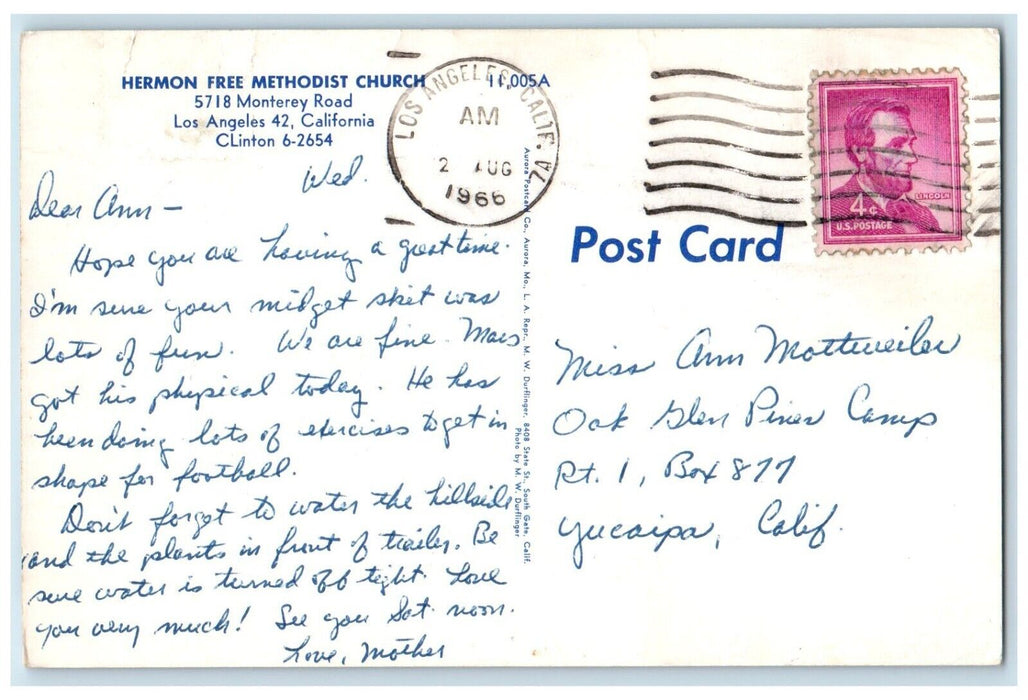 HERMON FREE METHODIST CHURCH 11,005A
5718 Monterey Road
Los Angeles 42, California
CLinton 6-2654
LOS ANGELES, CALIF. 7A
AM
2 AUG
1966
LINCOLN
4¢
U.S. POSTAGE
Post Card
Wed.
Dear Ann –
Hope you are having a great time.
I'm sure your midget skit was
lots of fun. We are fine. Mars
got his physical today. He has
been doing lots of exercises to get in
shape for football.
Don't forget to water the hillside
and the plants in front of trailer. Be
sure water is turned off tight. Love
you very much! See you Sat. noon.
Love, Mother
Aurora Postcard Co., Aurora, Mo., L. A. Repr., M. W. Durflinger, 8408 State St., South Gate, Calif.
Photo by M. W. Durflinger
Miss Ann Mottweiler
Oak Glen Pines Camp
Rt. 1, Box 877
Yucaipa, Calif.